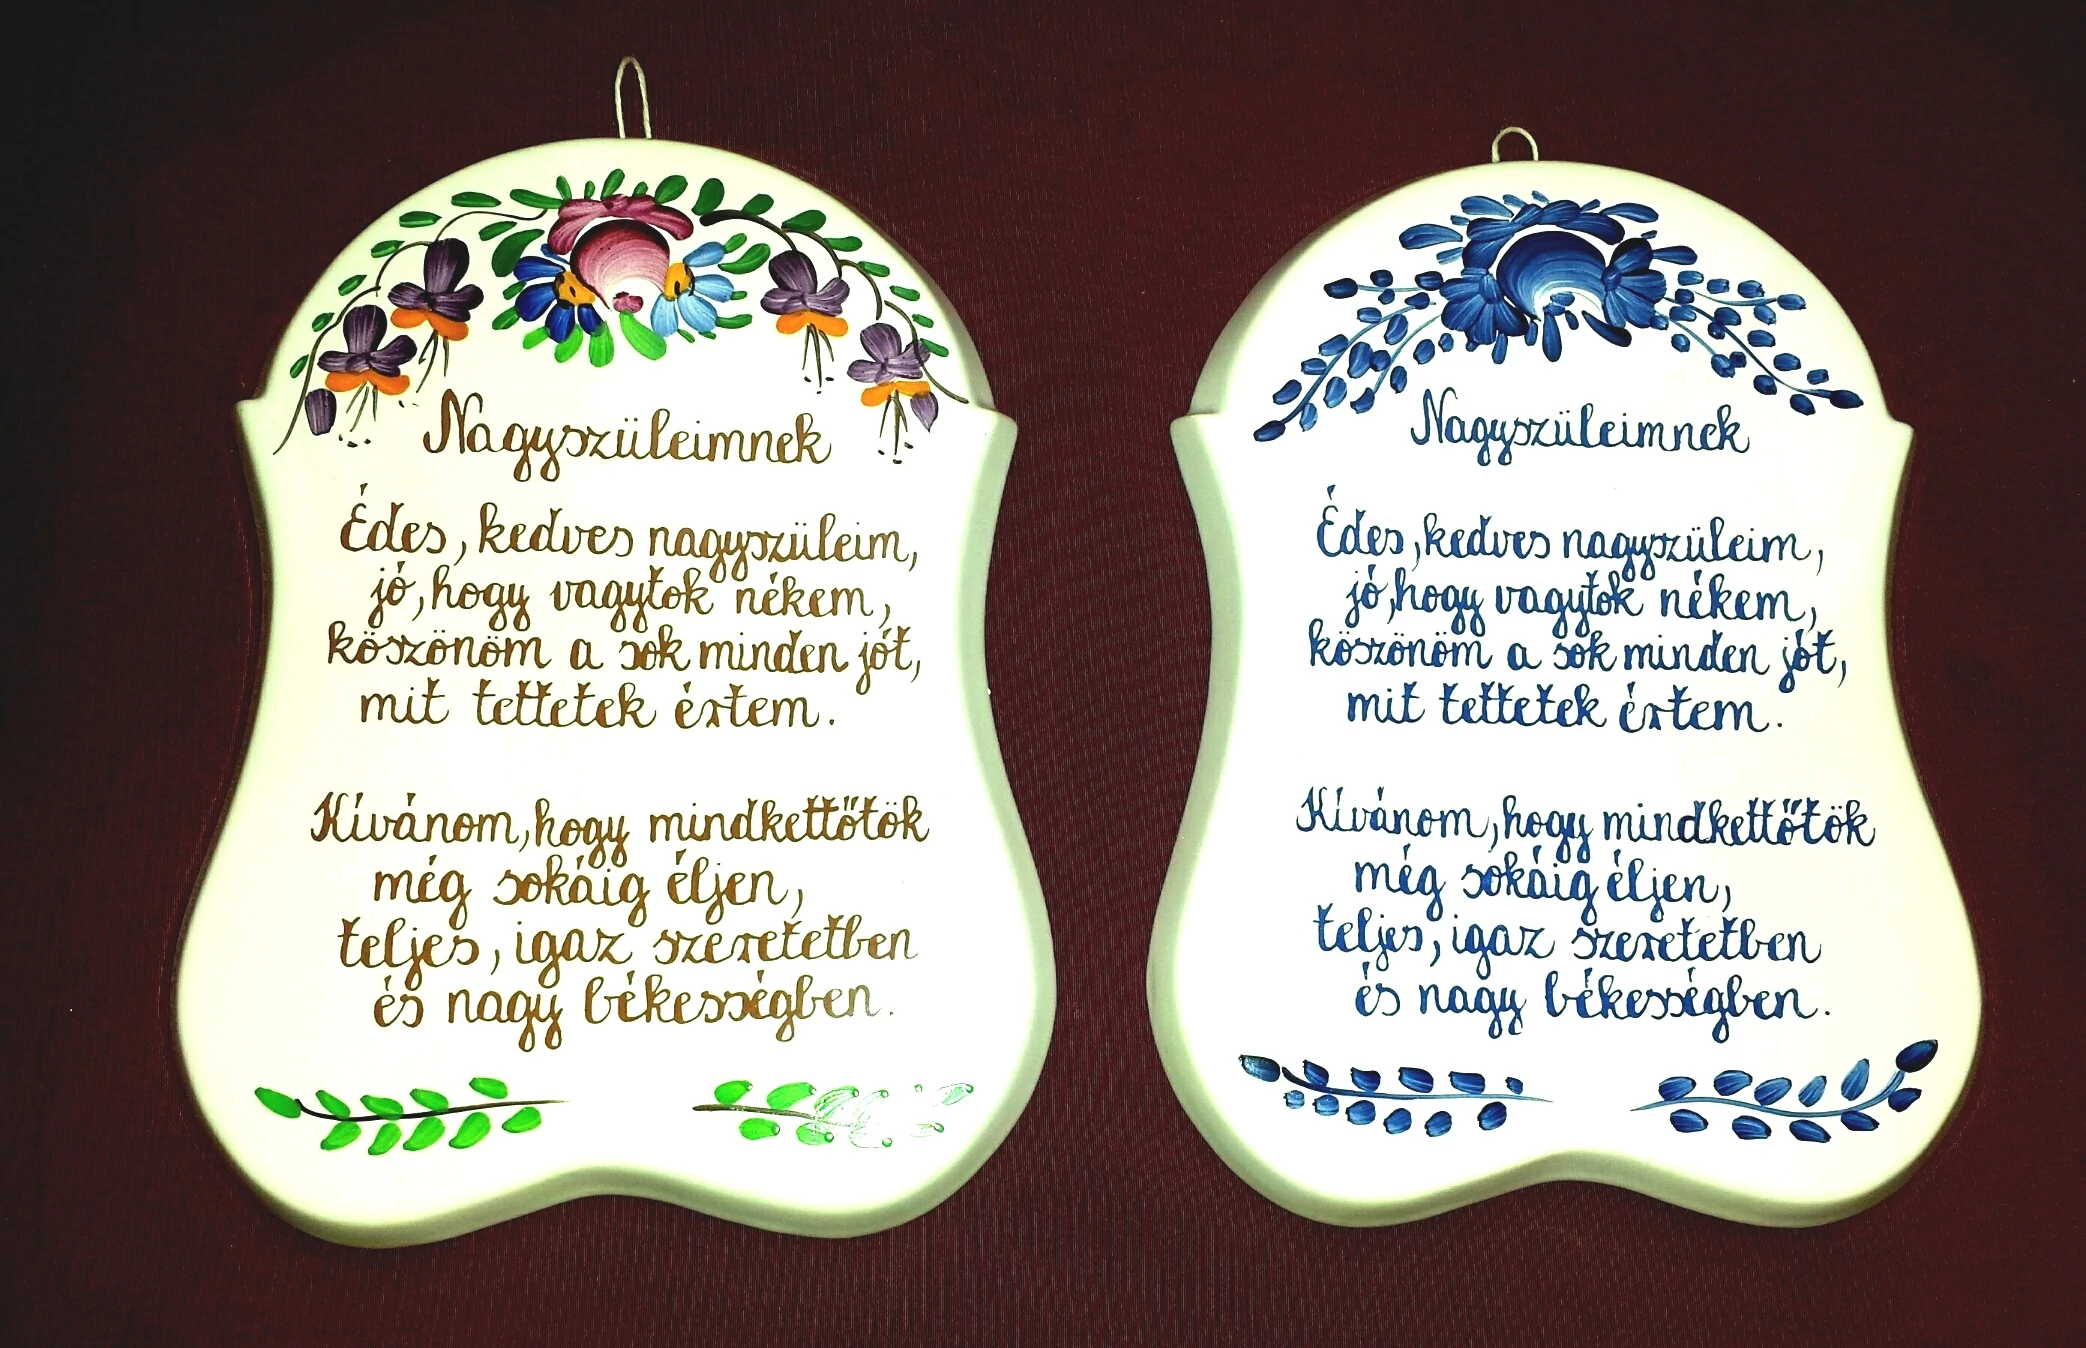 Nagyszüleimnek
Édes, kedves nagyszüleim,
jó, hogy vagytok nékem,
köszönöm a sok minden jót,
mit tettetek értem.
Kívánom, hogy mindkettőtök
még sokáig éljen,
teljes, igaz szeretetben
és nagy békességben.
Nagyszüleimnek
Édes, kedves nagyszüleim,
jó, hogy vagytok nékem,
köszönöm a sok minden jót,
mit tettetek értem.
Kívánom, hogy mindkettőtök
még sokáig éljen,
teljes, igaz szeretetben
és nagy békességben.